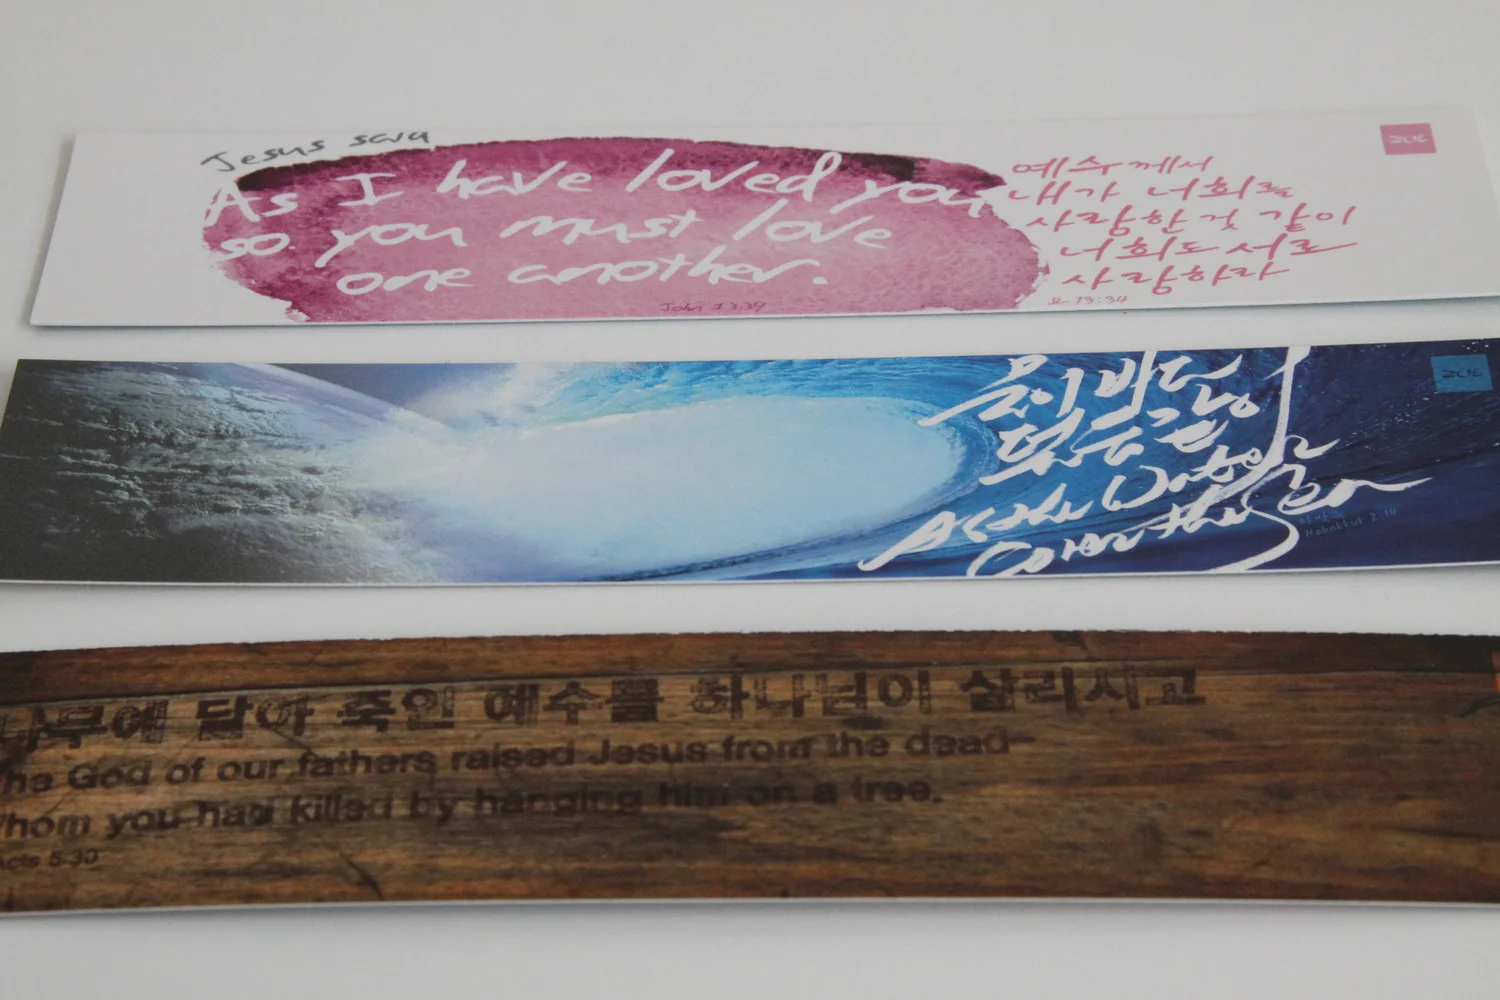 Jesus said
As I have loved you
so you must love
one another.
John 13:34
예수께서
내가 너희를
사랑한 것 같이
너희도 서로
사랑하라
요 13:34
물이 바다
덮음 같이
As the Water
Cover the Sea
Habakkuk 2:14
나무에 달아 죽인 예수를 하나님이 살리시고
The God of our fathers raised Jesus from the dead-
Whom you had killed by hanging him on a tree.
Acts 5:30